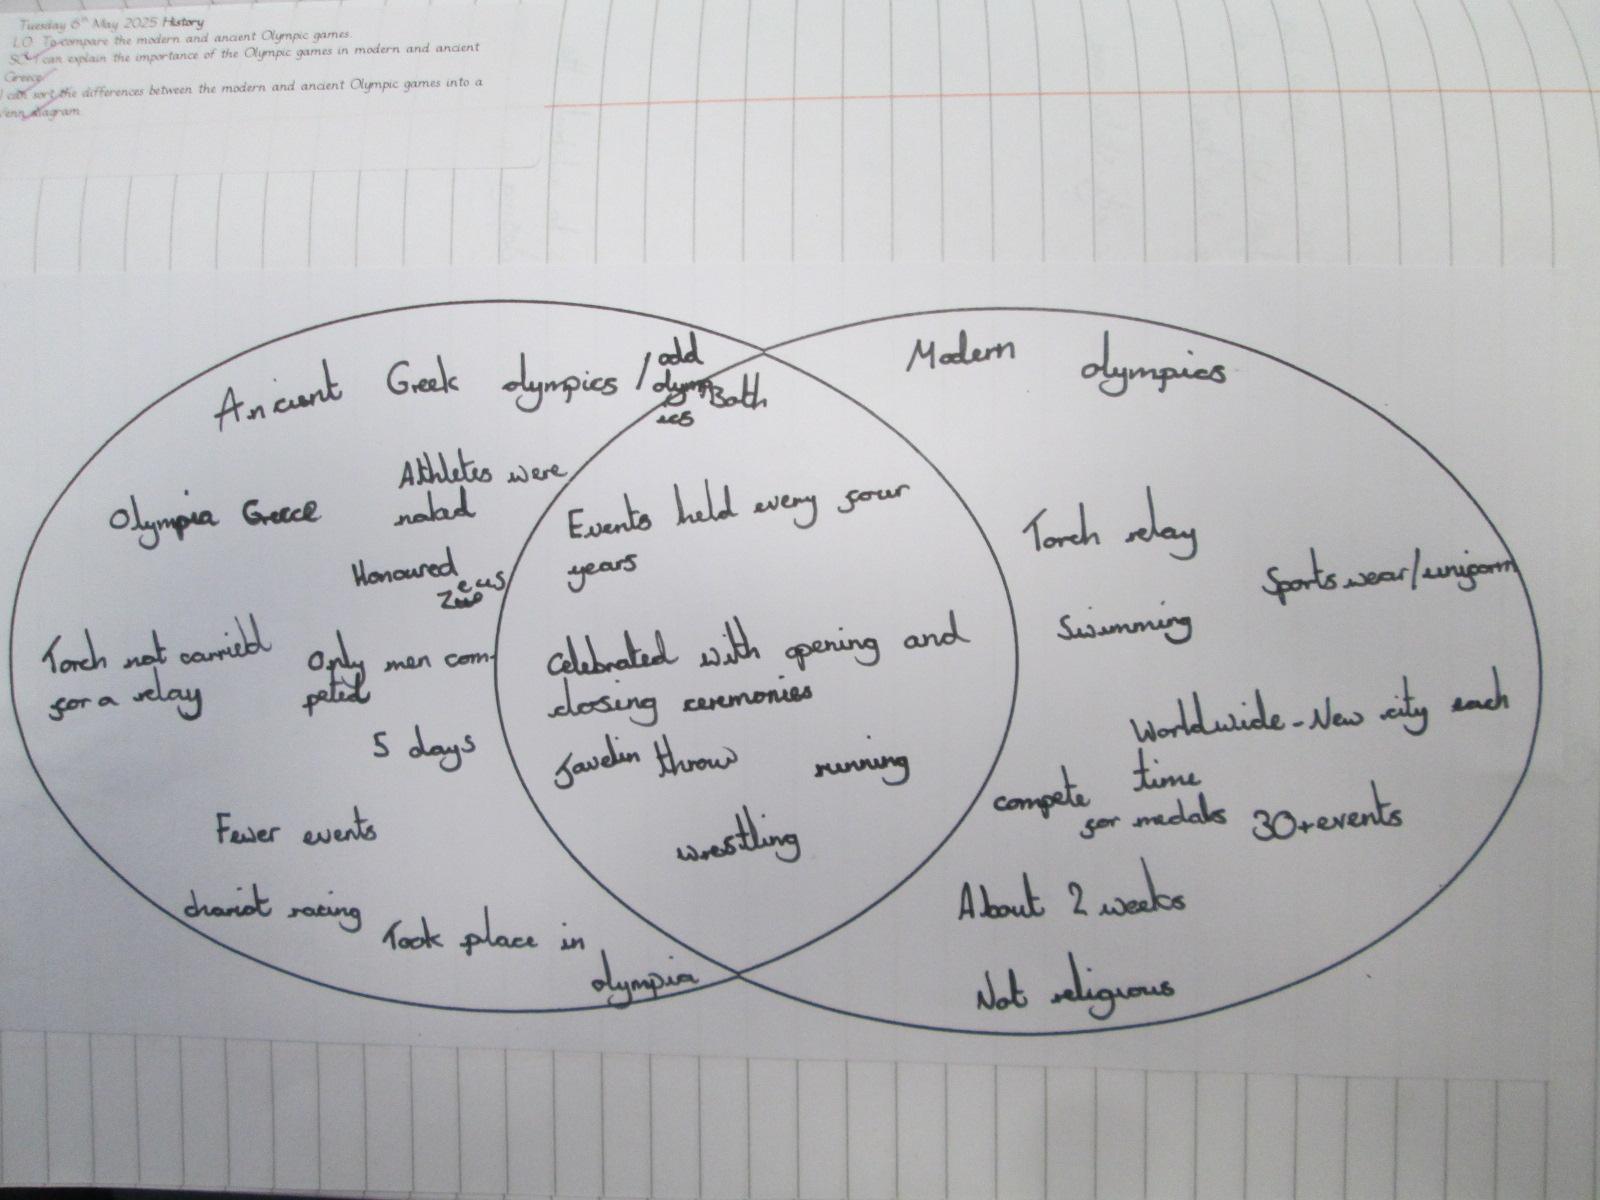 Tuesday 6th May 2025 History
LO To compare the modern and ancient Olympic games.
SC I can explain the importance of the Olympic games in modern and ancient
Greece
I can sort the differences between the modern and ancient Olympic games into a
Venn diagram
Ancient Greek olympics / odd
olymp
ics
Athletes were
naked
Olympia Greece
Honoured
Zeus
Torch not carried
for a relay
Only men com-
peted
5 days
Fewer events
chariot racing
Took place in
olympia
Both
Events held every four
years
Celebrated with opening and
closing ceremonies
Javelin throw
running
wrestling
Modern olympics
Torch relay
Sports wear/uniform
Swimming
Worldwide - New city each
time
compete
for medals
30+events
About 2 weeks
Not religious